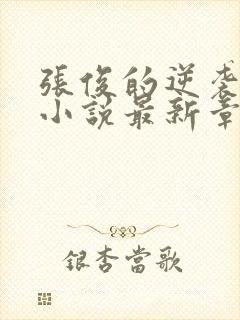 張俊的逆袭
小說最新章
銀杏當歌